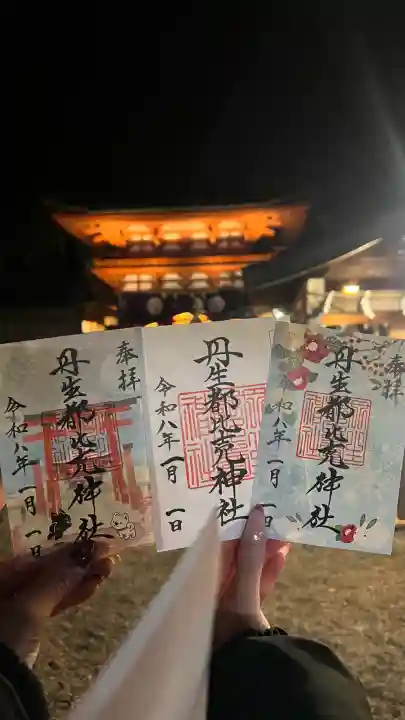 奉拝
丹生都比売神社
令和八年一月一日
丹生都比売神社
令和八年一月一日
奉拝
丹生都比売神社
令和八年一月一日